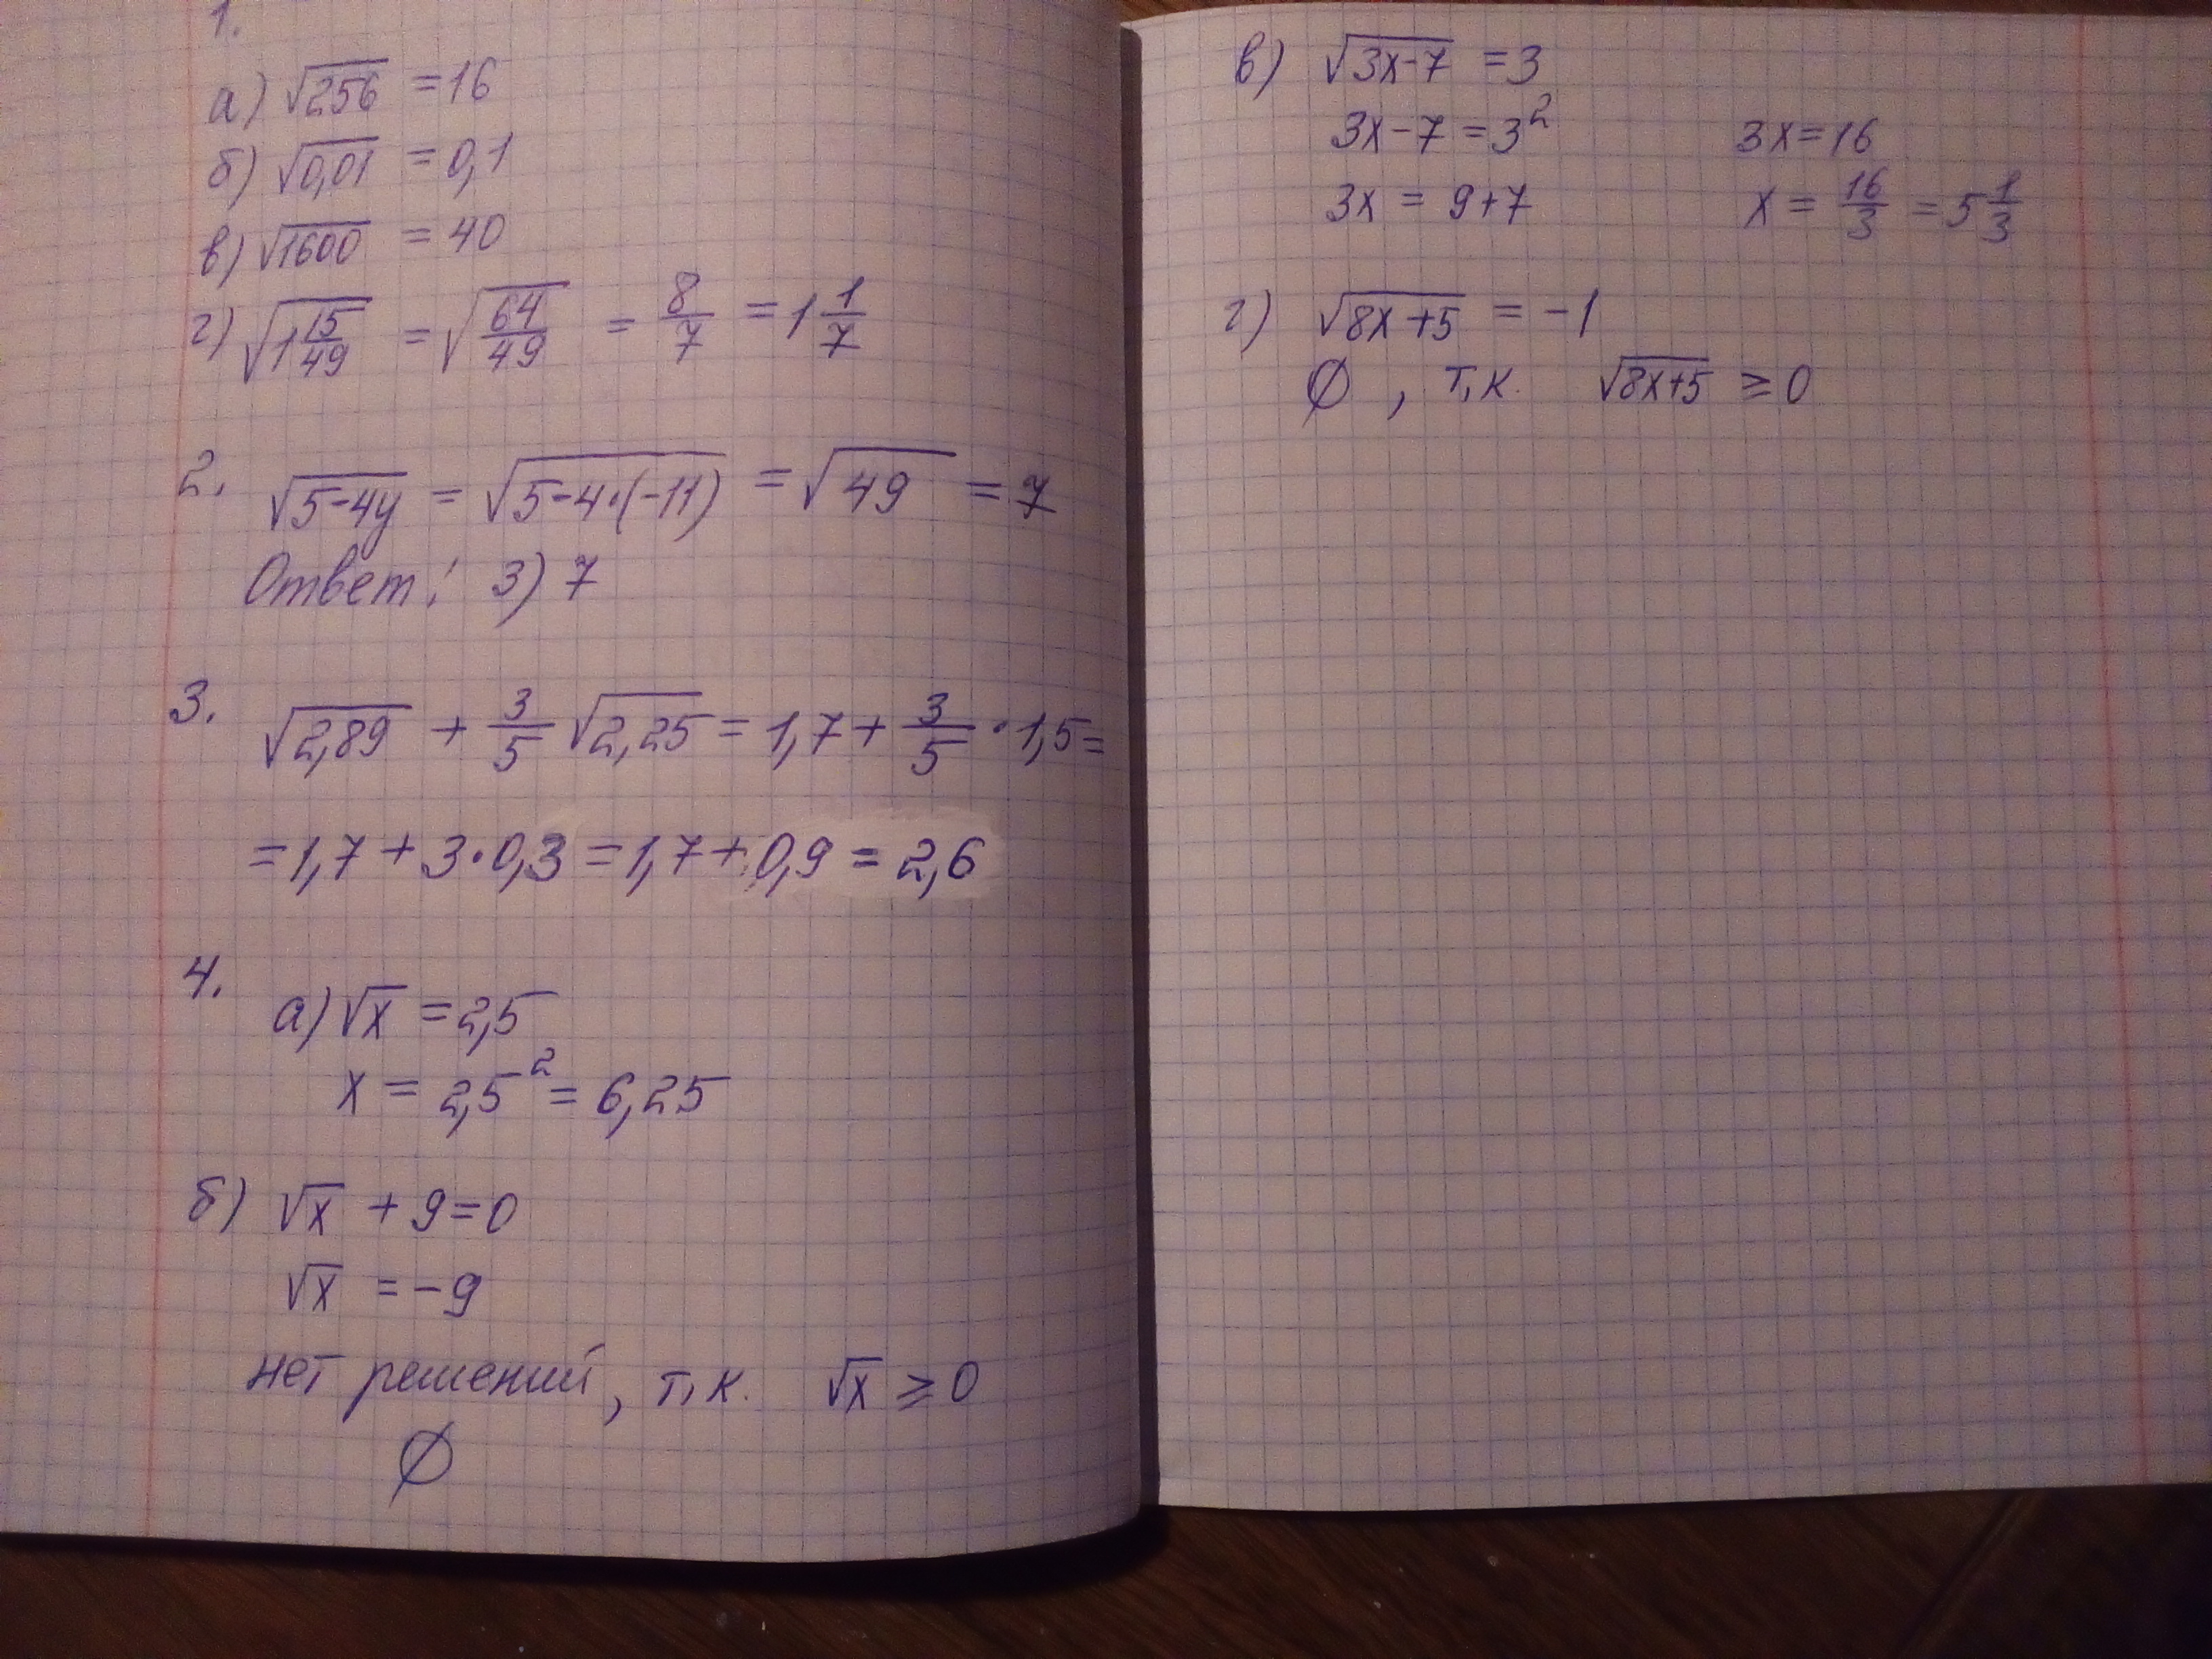 1.
а) √256 = 16
б) √0,01 = 0,1
в) √1600 = 40
г) √1 15/49 = √64/49 = 8/7 = 1 1/7
2. √5-4y = √5-4·(-11) = √49 = 7
Ответ: 3) 7
3. √2,89 + 3/5 √2,25 = 1,7 + 3/5 · 1,5 =
= 1,7 + 3·0,3 = 1,7 + 0,9 = 2,6
4.
а) √x = 2,5
x = 2,5² = 6,25
б) √x + 9 = 0
√x = -9
нет решений, т.к. √x ≥ 0
∅
в) √3x-7 = 3
3x-7 = 3²
3x = 9+7
3x = 16
x = 16/3 = 5 1/3
г) √8x+5 = -1
∅, т.к. √8x+5 ≥ 0